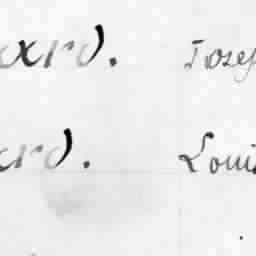 ard. Josep
ard. Louis